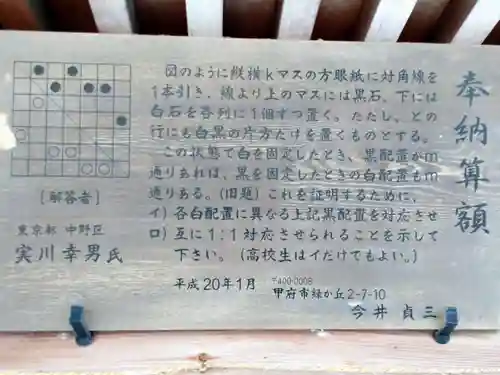 奉納算額
図のように縦横kマスの方眼紙に対角線を
1本引き、線より上のマスには黒石、下には
白石を各列に1個ずつ置く。ただし、どの
行にも白黒の片方だけを置くものとする。
この状態で白を固定したとき、黒配置がm
通りあれば、黒を固定したときの白配置もm
通りある。(旧題)これを証明するために、
イ)各白配置に異なる上記黒配置を対応させ
ロ)互に1:1対応させられることを示して
下さい。(高校生はイだけでもよい。)
平成20年1月
〒400-0008
甲府市緑が丘2-7-10
今井 貞三
[解答者]
東京都 中野区
実川幸男氏